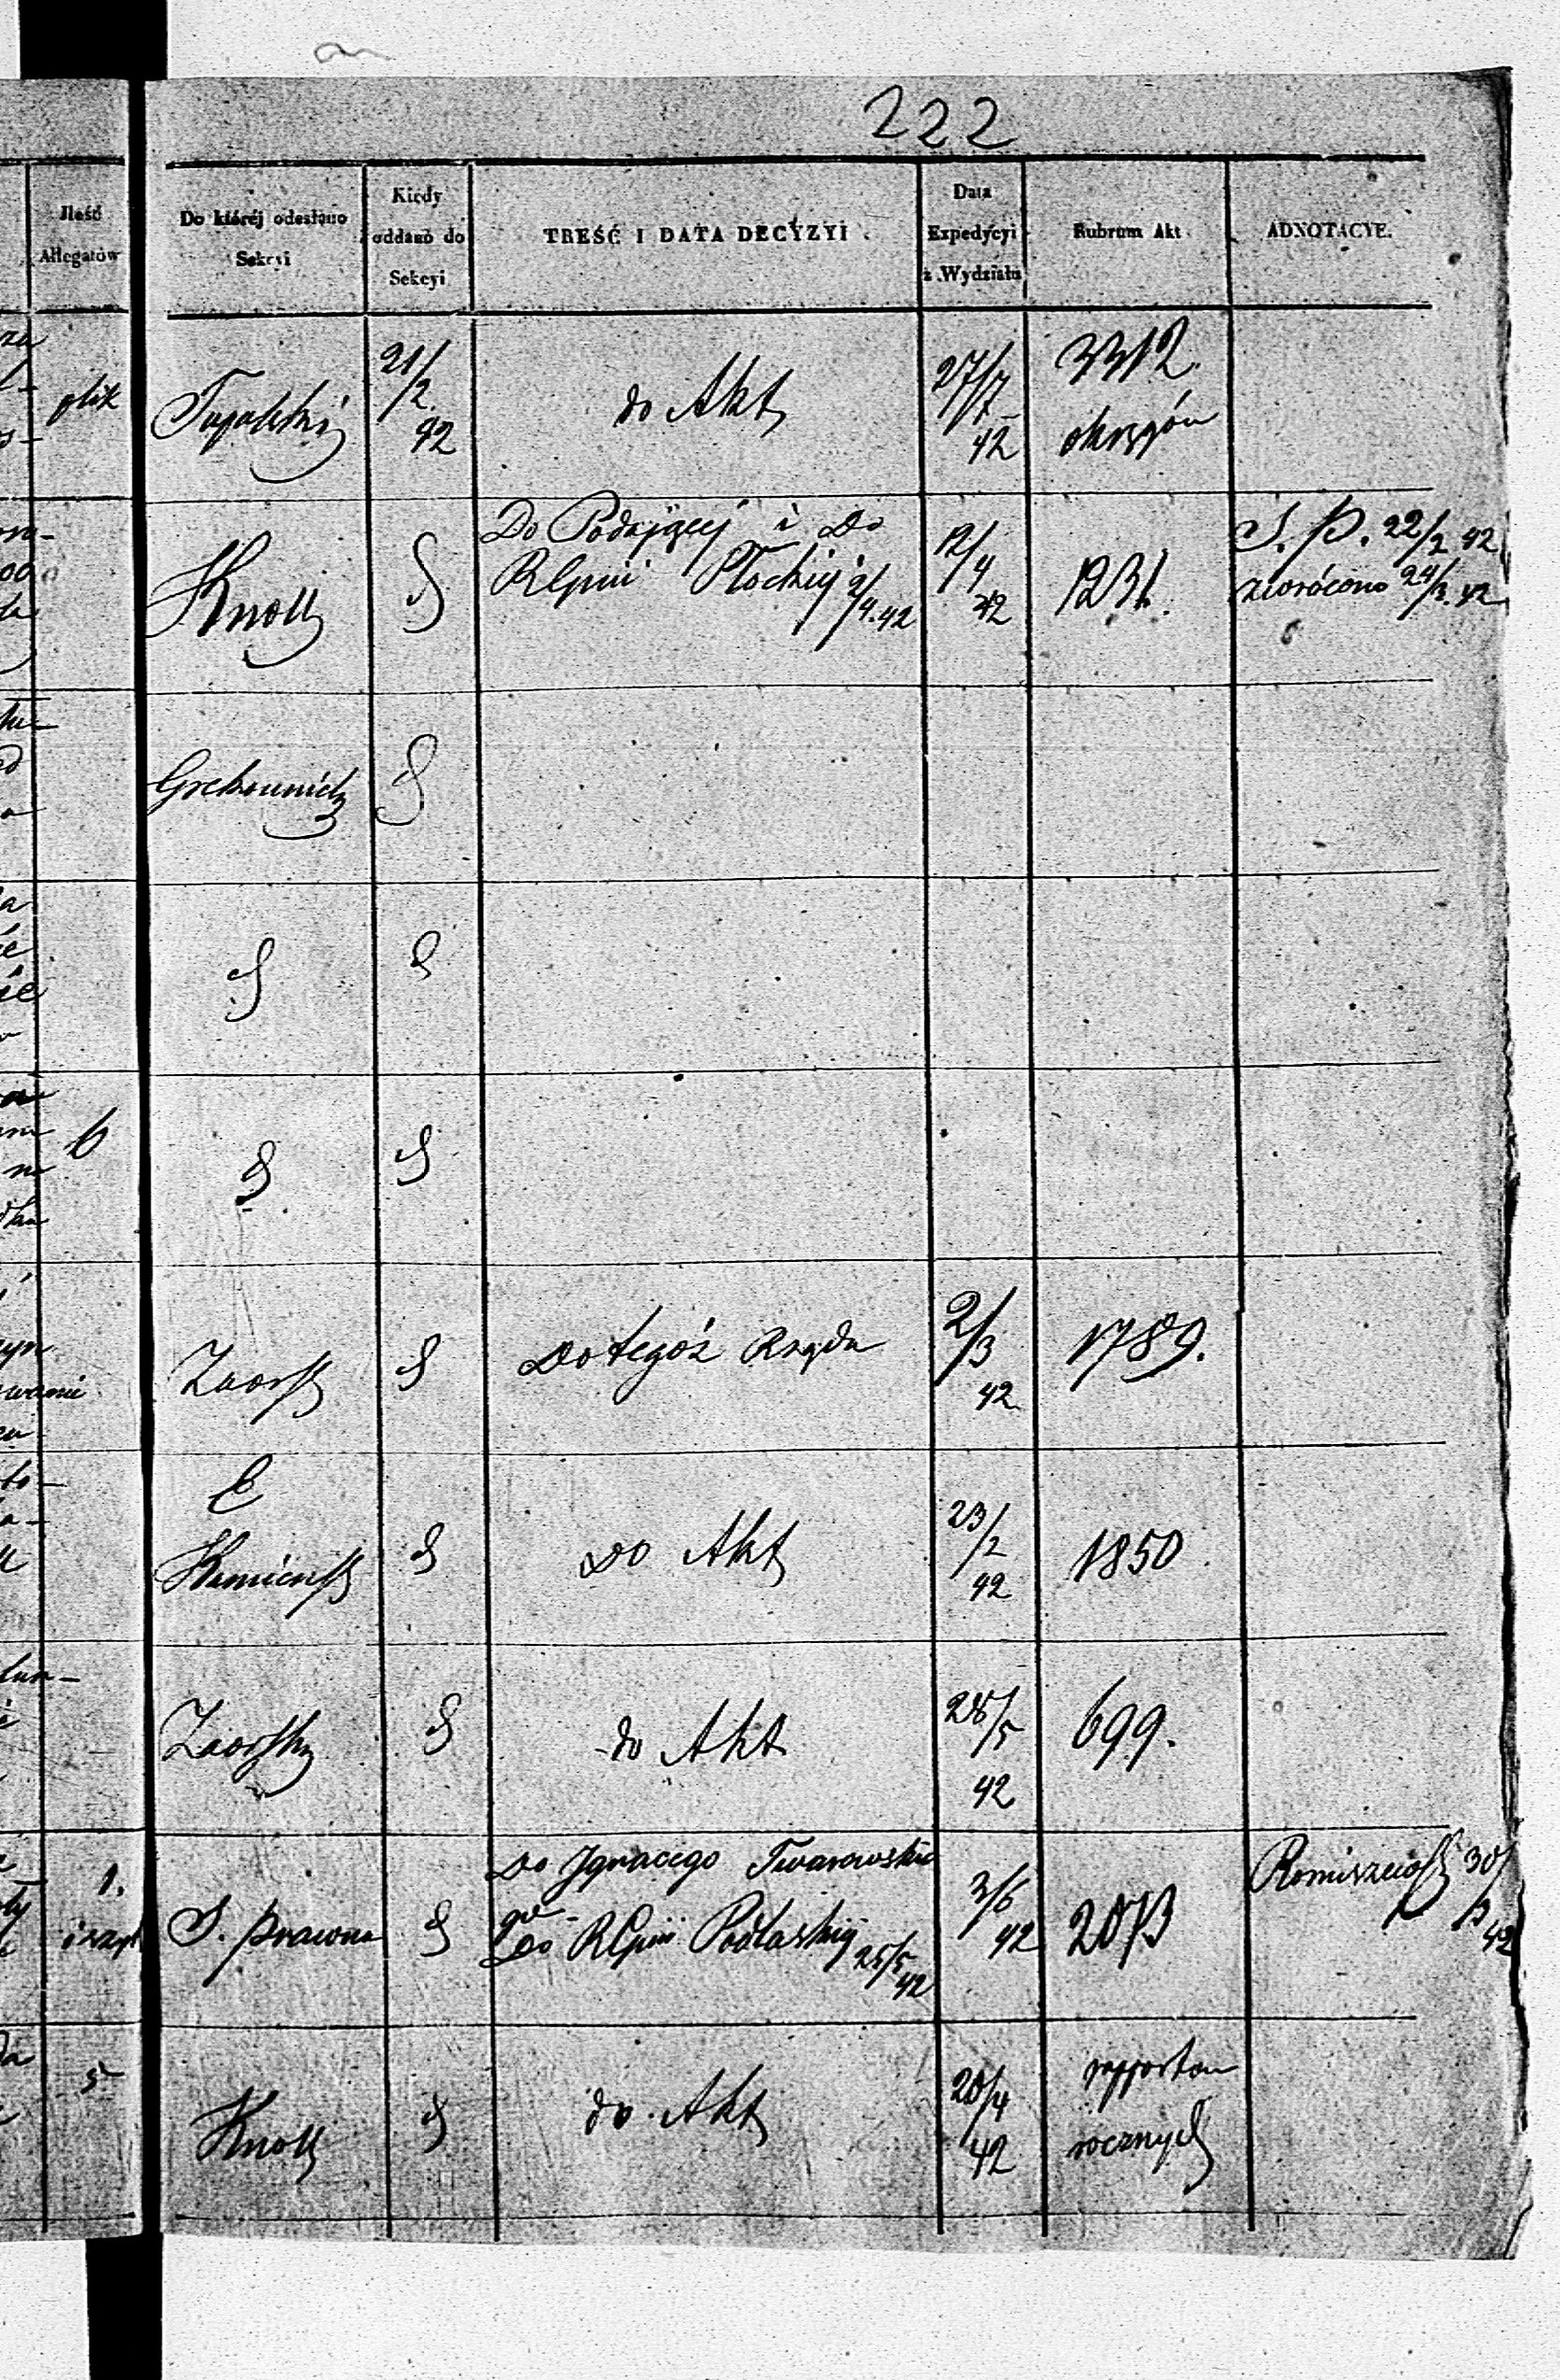 222
Ilość
Allegatów
Do któréj odesłano
Sekcyi
Kiedy
oddano do
Sekcyi
TREŚĆ I DATA DECYZYI.
Data
Expedycyi
z Wydziału
Rubrum Akt.
ADNOTACYE.
plik
21/2 42
do Akt
27/7 42
3312.
okręgów
Knoll
Do Podającéj i Do
RGbnii Płockiéj 2/4.42
12/4 42
1231.
S. P. 22/2 42
zwrócono 24/3.42
6
Zaorsk
Do tegoż Rządu
2/3 42
1789.
Kamieńsk
Do Akt
23/2 42
1850
Zaorski
do Akt
28/5 42
699.
1.
S. Prawna
Do Ignacego Twarowskie
go
Do RGbnii Podlaskiéj 25/5 42
3/6 42
2073
5
Knoll
do Akt
20/4 42
rapportów
rocznych